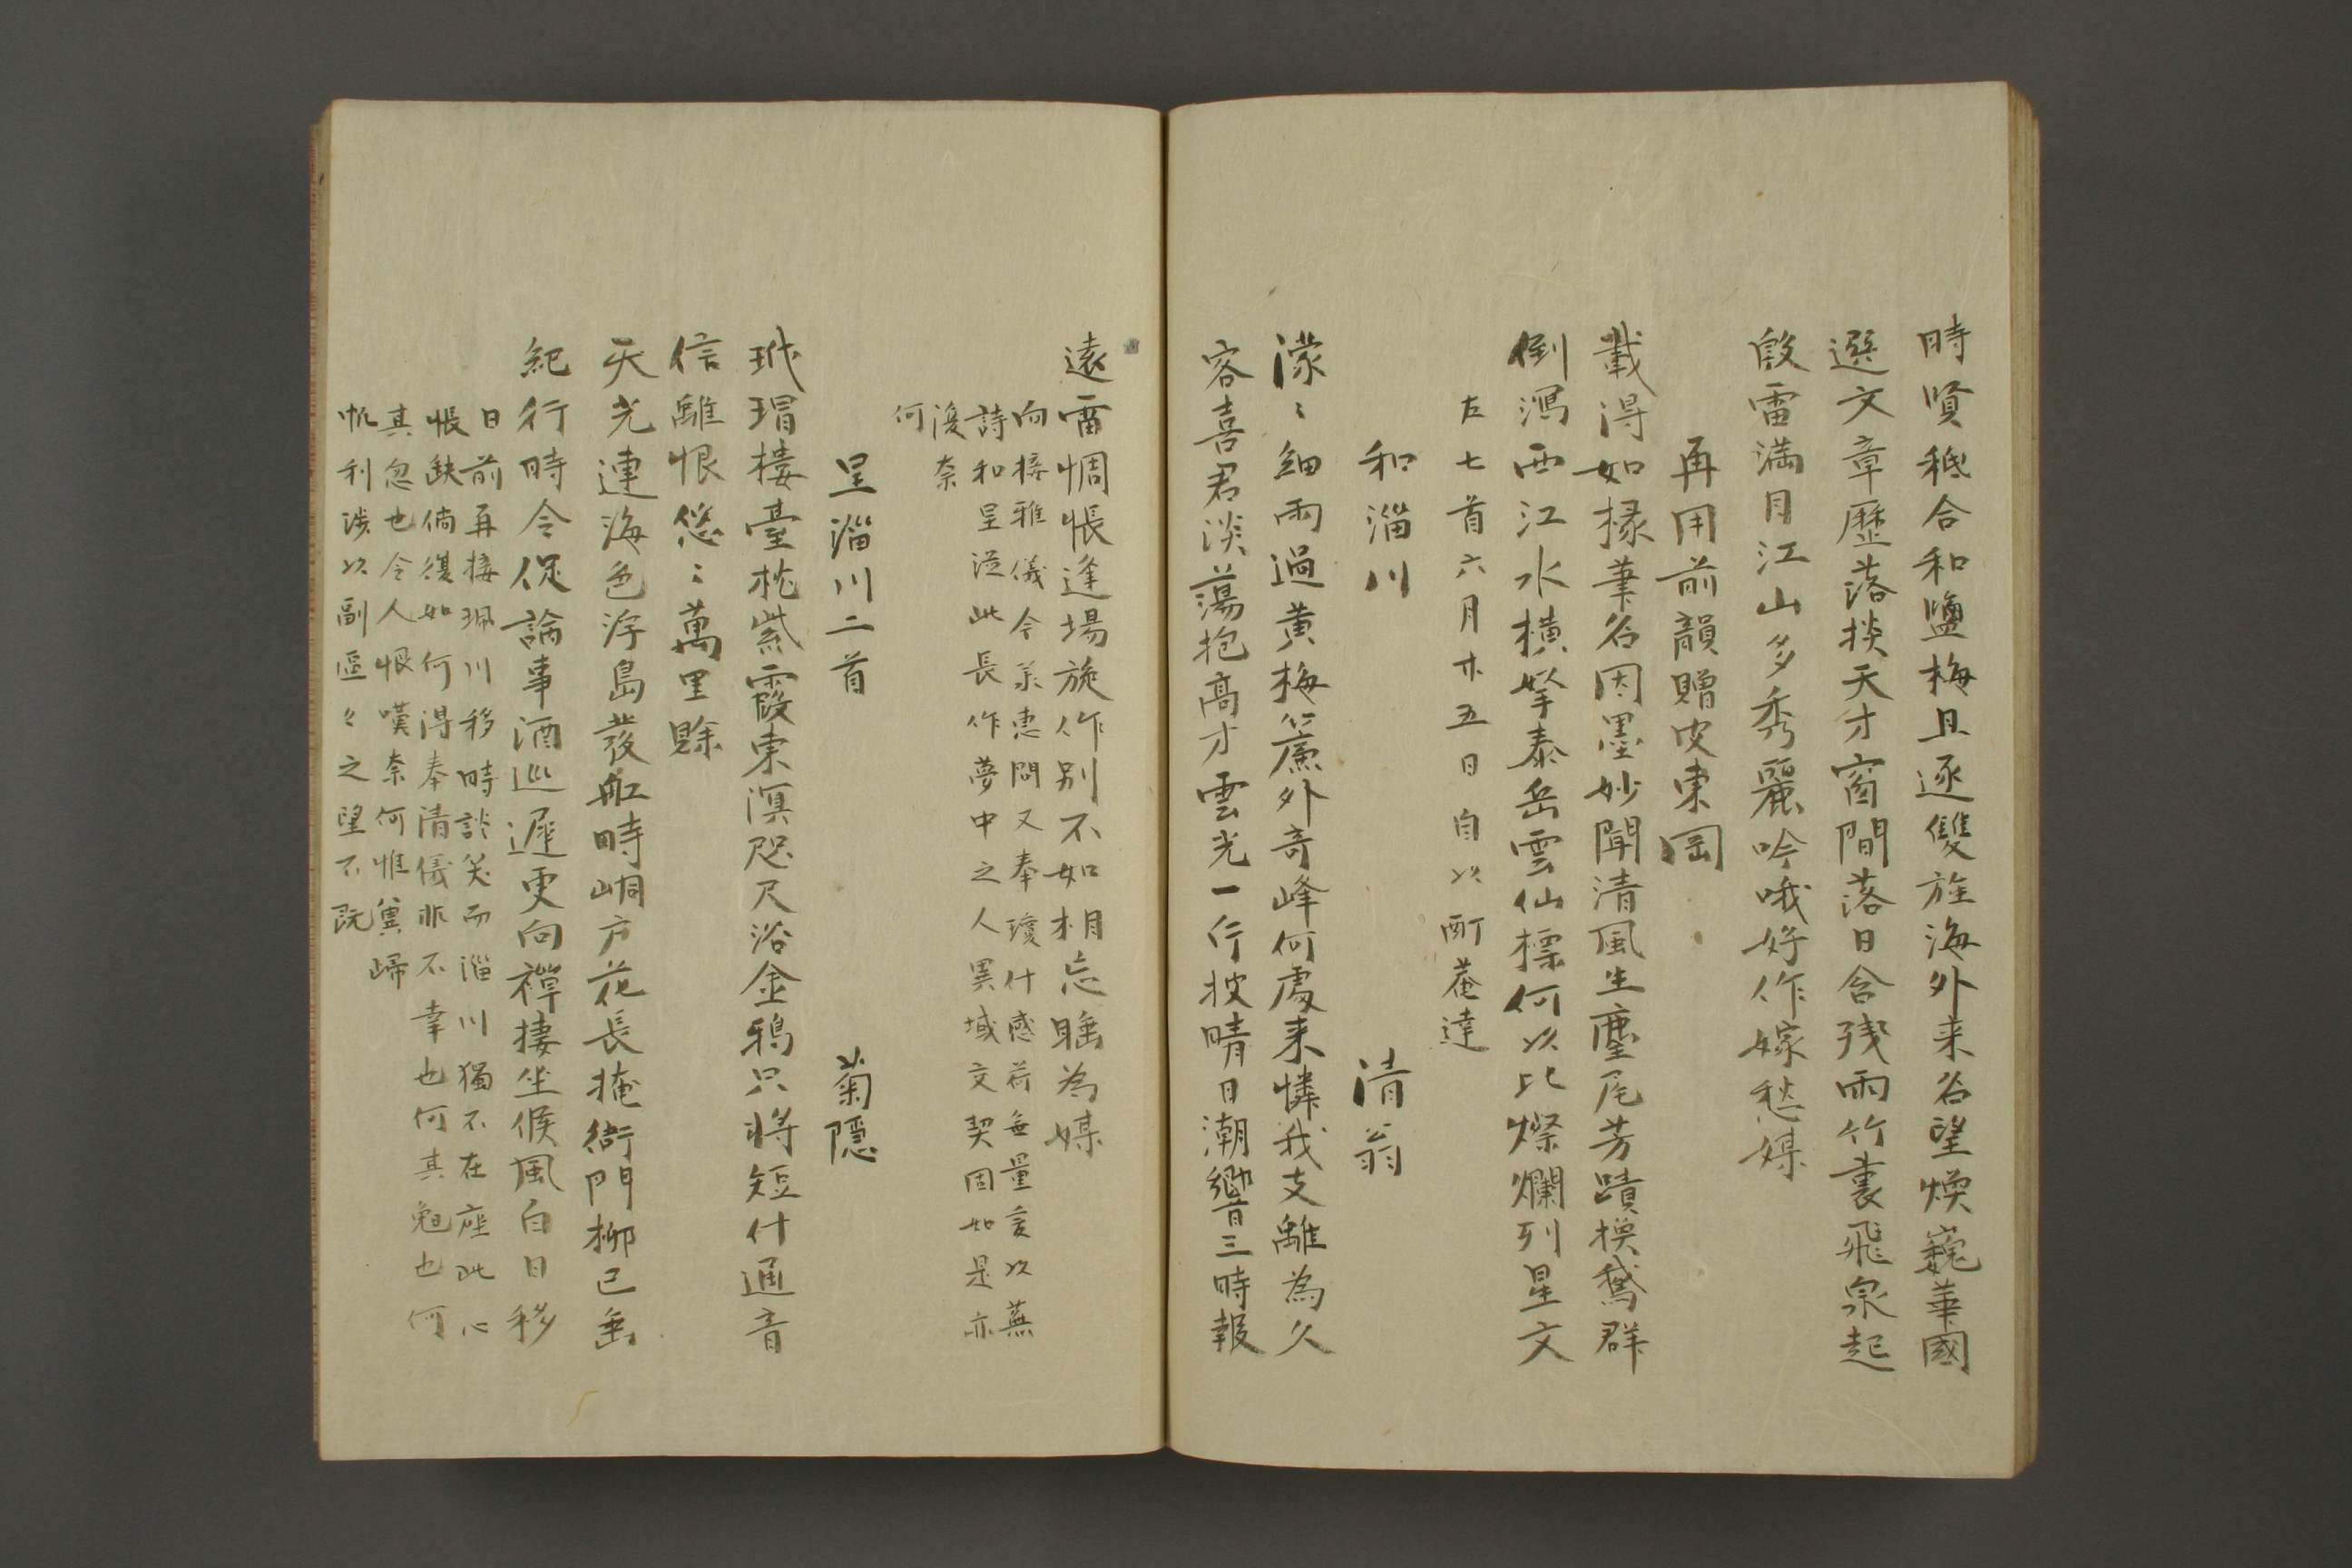 時賢秪合和塩梅且逐雙旌海外来名望煥巍華國
選文章歷落掞天才窗間落日含残雨竹裏飛泉起
殷雷満目江山多秀麗吟哦好作嫁愁媒
再用前韻贈皮東岡
載得如椽筆名因墨妙聞清風生麈尾芳蹟換鵞群
倒瀉西江水横拏泰岳雲仙標何以比燦爛列星文
左七首六月廿五日自以酊菴達
和淄川　清翁
濛〻細雨過黄梅簾外奇峰何處来憐我支離為久
客喜君淡蕩抱高才雲光一行披晴日潮響三時報
遠雷惆悵逢場旋作别不如相忘睡為媒
向接雅儀今羕恵問又奉瓊什感荷無量爰以蕪
詩和呈從此長作夢中之人異域文契固如是亦
復奈
何
呈淄川二首　菊隠
玳瑁楼臺枕紫霞東溟咫尺浴金鴉只将短什通音
信離恨悠〻萬里賖
天光連海色浮島發舡時峒户花長掩衙門柳已垂
紀行時令促論事酒巡遲更向禪棲坐候風白日移
日前再接珮川移時談笑而淄川獨不在座此心
悵缺倘復如何得奉清儀非不幸也何其勉也何
其忽也令人恨嘆奈何惟冀歸
帆利涉以副區々之望不既